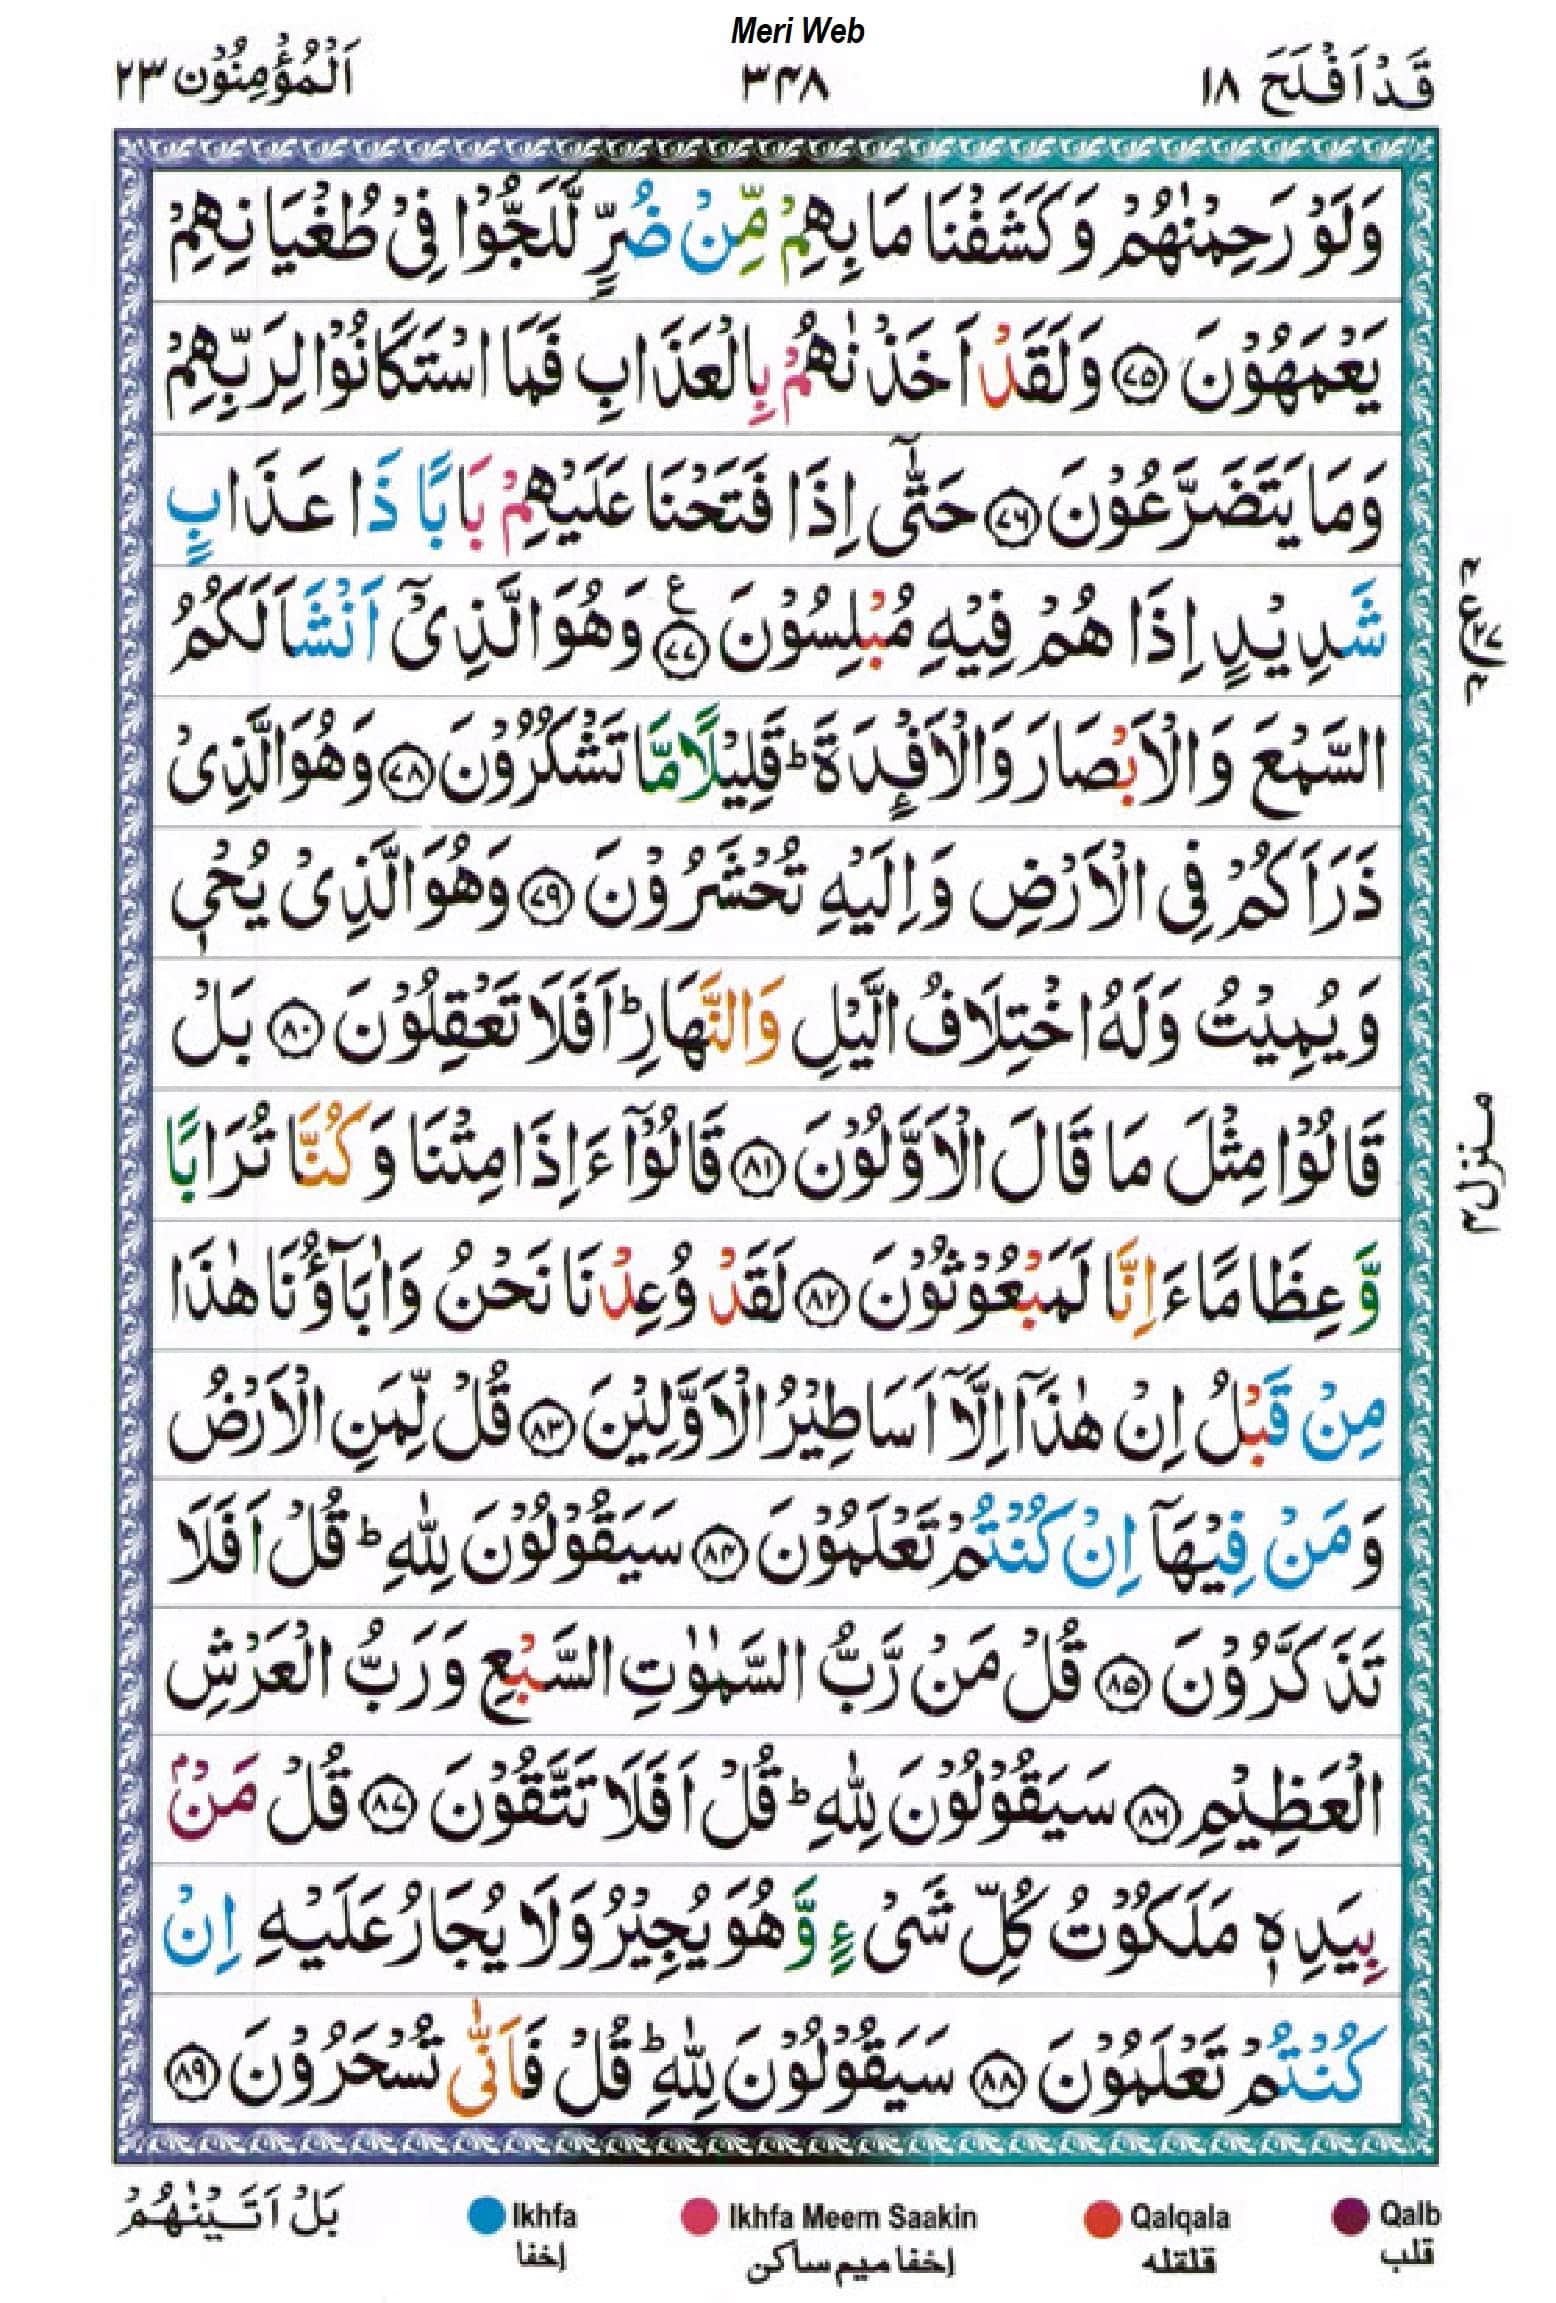 Meri Web
قَدْ اَفْلَحَ ١٨
٣٤٨
اَلْمُؤْمِنُوْن ٢٣
وَلَوْ رَحِمْنٰهُمْ وَكَشَفْنَا مَا بِهِمْ مِّنْ ضُرٍّ لَّلَجُّوْا فِىْ طُغْيَانِهِمْ
يَعْمَهُوْنَ ٧٥ وَلَقَدْ اَخَذْنٰهُمْ بِالْعَذَابِ فَمَا اسْتَكَانُوْا لِرَبِّهِمْ
وَمَا يَتَضَرَّعُوْنَ ٧٦ حَتّٰٓى اِذَا فَتَحْنَا عَلَيْهِمْ بَابًا ذَا عَذَابٍ
شَدِيْدٍ اِذَا هُمْ فِيْهِ مُبْلِسُوْنَ ٧٧ ع وَهُوَ الَّذِىْٓ اَنْشَاَ لَكُمُ
السَّمْعَ وَالْاَبْصَارَ وَالْاَفْـِٕدَةَ ؕ قَلِيْلًا مَّا تَشْكُرُوْنَ ٧٨ وَهُوَ الَّذِىْ
ذَرَاَكُمْ فِى الْاَرْضِ وَاِلَيْهِ تُحْشَرُوْنَ ٧٩ وَهُوَ الَّذِىْ يُحْىٖ
وَيُمِيْتُ وَلَهُ اخْتِلَافُ الَّيْلِ وَالنَّهَارِ ؕ اَفَلَا تَعْقِلُوْنَ ٨٠ بَلْ
قَالُوْا مِثْلَ مَا قَالَ الْاَوَّلُوْنَ ٨١ قَالُوْٓا ءَاِذَا مِتْنَا وَكُنَّا تُرَابًا
وَّعِظَامًا ءَاِنَّا لَمَبْعُوْثُوْنَ ٨٢ لَقَدْ وُعِدْنَا نَحْنُ وَاٰبَآؤُنَا هٰذَا
مِنْ قَبْلُ اِنْ هٰذَآ اِلَّآ اَسَاطِيْرُ الْاَوَّلِيْنَ ٨٣ قُلْ لِّمَنِ الْاَرْضُ
وَمَنْ فِيْهَآ اِنْ كُنْتُمْ تَعْلَمُوْنَ ٨٤ سَيَقُوْلُوْنَ لِلّٰهِ ؕ قُلْ اَفَلَا
تَذَكَّرُوْنَ ٨٥ قُلْ مَنْ رَّبُّ السَّمٰوٰتِ السَّبْعِ وَرَبُّ الْعَرْشِ
الْعَظِيْمِ ٨٦ سَيَقُوْلُوْنَ لِلّٰهِ ؕ قُلْ اَفَلَا تَتَّقُوْنَ ٨٧ قُلْ مَنْۢ
بِيَدِهٖ مَلَكُوْتُ كُلِّ شَىْءٍ وَّهُوَ يُجِيْرُ وَلَا يُجَارُ عَلَيْهِ اِنْ
كُنْتُمْ تَعْلَمُوْنَ ٨٨ سَيَقُوْلُوْنَ لِلّٰهِ ؕ قُلْ فَاَنّٰى تُسْحَرُوْنَ ٨٩
منزل ٤
بَلْ اَتَيْنٰهُمْ
Ikhfa
إخفا
Ikhfa Meem Saakin
إخفا ميم ساكن
Qalqala
قلقله
Qalb
قلب